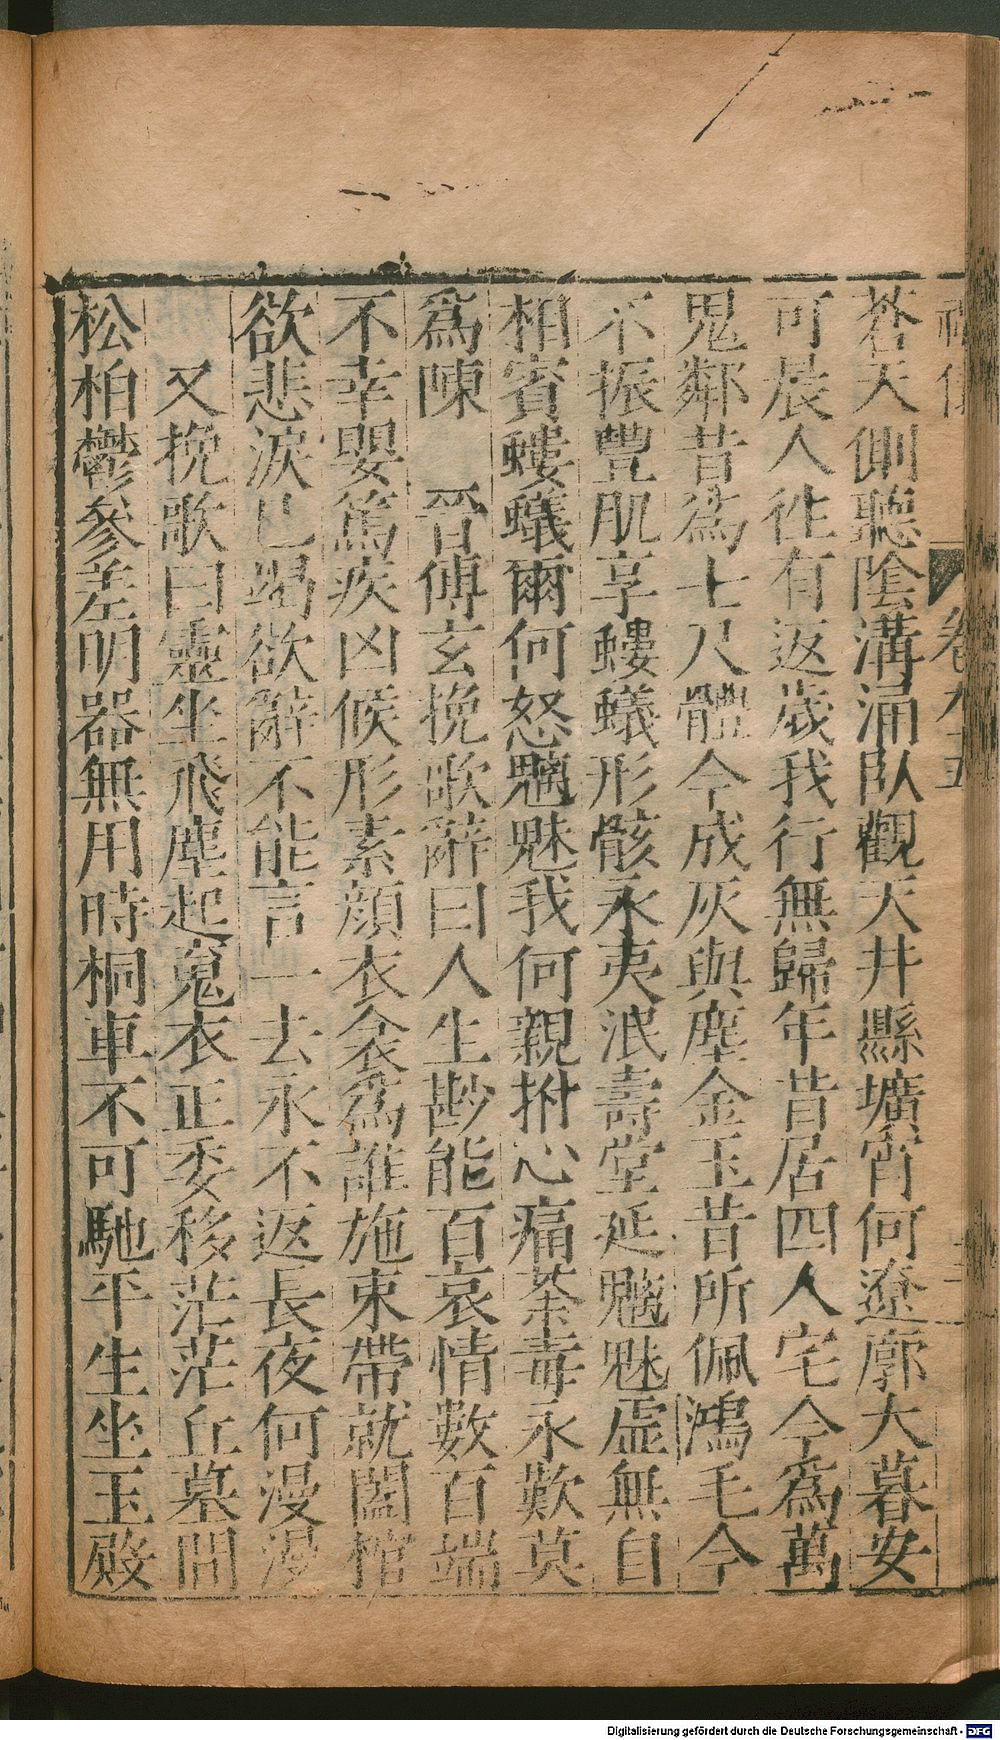 蒼天側聽陰溝涌臥觀天井縣壙宵何遼廓大暮安
可晨人徃有返歲我行無歸年昔居四人宅今爲萬
鬼鄰昔爲七尺體今成灰與塵金玉昔所佩鴻毛今
不振豐肌享螻蟻形骸永夷泯壽堂延魑魅虛無自
相賓螻蟻爾何怒魑魅我何親拊心痛荼毒永歎莫
爲陳　晉傅玄挽歌辭曰人生尠能百哀情數百端
不幸嬰篤疾凶候形素顔衣衾爲誰施束帶就闔棺
欲悲淚已竭欲辭不能言一去永不返長夜何漫漫
又挽歌曰靈坐飛塵起䰟衣正委移茫茫丘墓間
松柏鬱參差明器無用時桐車不可馳平生坐玉殿
卷九十五
Digitalisierung gefördert durch die Deutsche Forschungsgemeinschaft - DFG